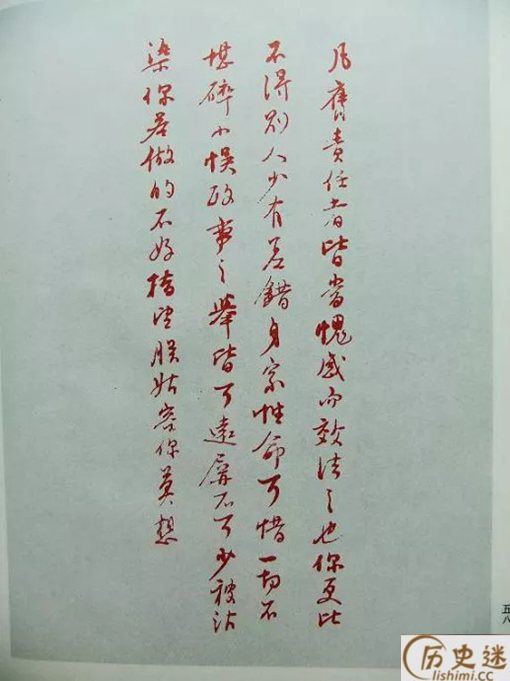 凡膺責任者皆當愧感而效法之也你更比
不得別人少有差錯身家性命可惜一切不
堪碎小悞政事之舉皆可遠屏不可少被沾
染你若做的不好指望朕姑容你莫想
五八
历史迷
lishimi.cc